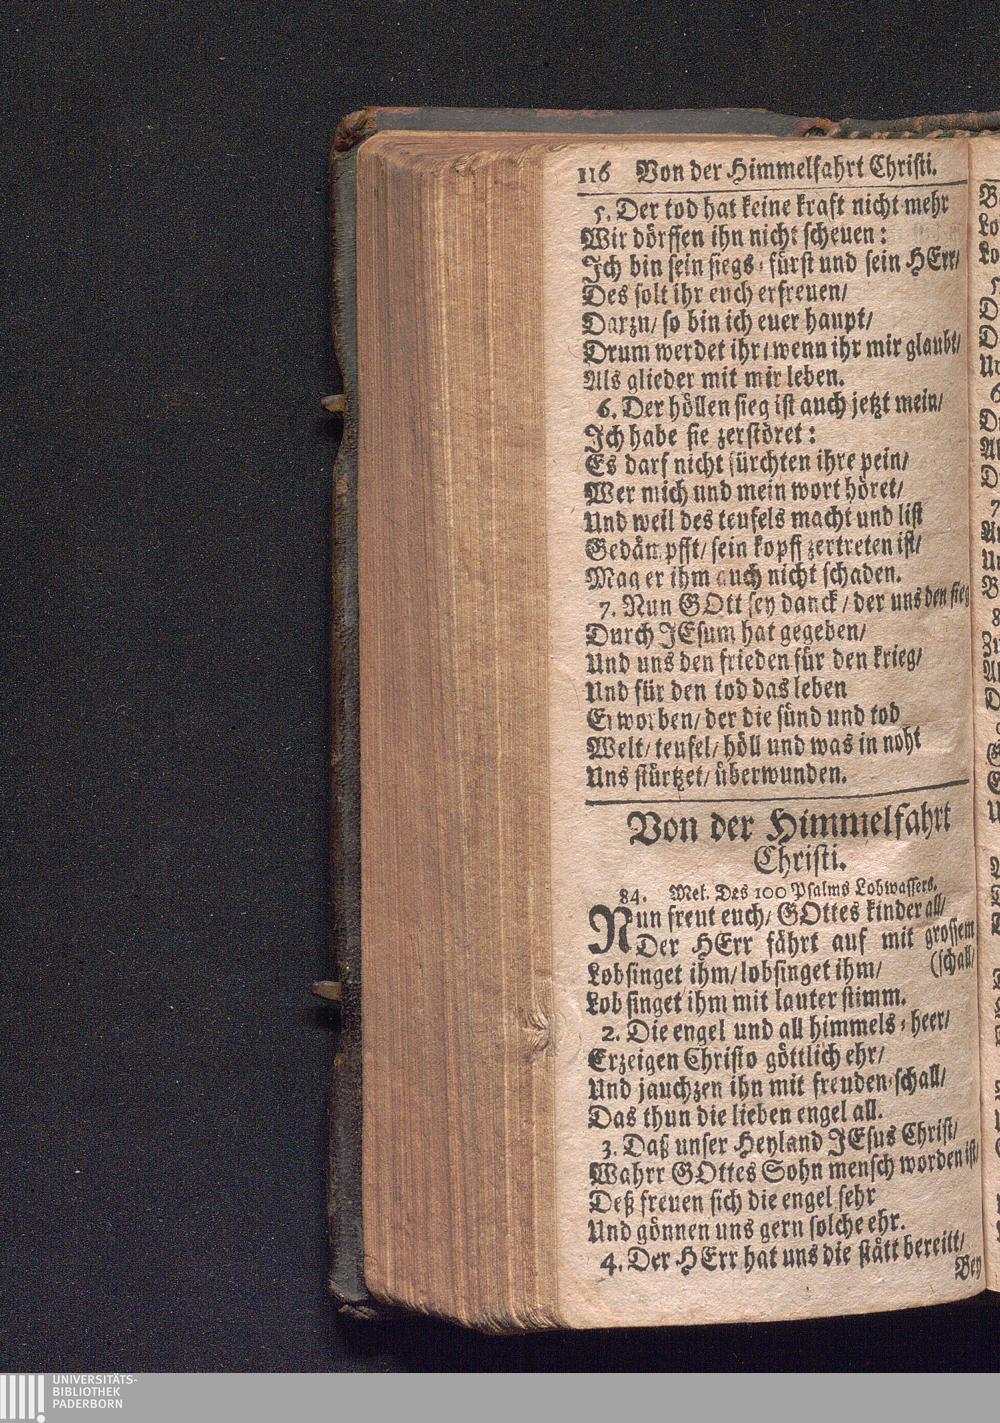 116 Von der Himmelfahrt Christi.
5. Der tod hat keine kraft nicht mehr
Wir dörffen ihn nicht scheuen:
Ich bin sein siegs-fürst und sein HErr/
Des solt ihr euch erfreuen/
Darzu/ so bin ich euer haupt/
Drum werdet ihr/ wenn ihr mir glaubt/
Als glieder mit mir leben.
6. Der höllen sieg ist auch jetzt mein/
Ich habe sie zerstöret:
Es darf nicht fürchten ihre pein/
Wer mich und mein wort höret/
Und weil des teufels macht und list
Gedämpfft/ sein kopff zertreten ist/
Mag er ihm auch nicht schaden.
7. Nun GOtt sey danck/ der uns den sieg
Durch JEsum hat gegeben/
Und uns den frieden für den krieg/
Und für den tod das leben
Erworben/ der die sünd und tod
Welt/ teufel/ höll und was in noht
Uns stürtzet/ überwunden.
Von der Himmelfahrt
Christi.
84. Mel. Des 100 Psalms Lobwassers.
Nun freut euch/ GOttes kinder all/
Der HErr fährt auf mit grossem
(schall/
Lobsinget ihm/ lobsinget ihm/
Lobsinget ihm mit lauter stimm.
2. Die engel und all himmels-heer/
Erzeigen Christo göttlich ehr/
Und jauchzen ihn mit freuden-schall/
Das thun die lieben engel all.
3. Daß unser Heyland JEsus Christ/
Wahrr GOttes Sohn mensch worden ist/
Deß freuen sich die engel sehr
Und gönnen uns gern solche ehr.
4. Der HErr hat uns die stätt bereitt/
Bey
UNIVERSITÄTS-
BIBLIOTHEK
PADERBORN